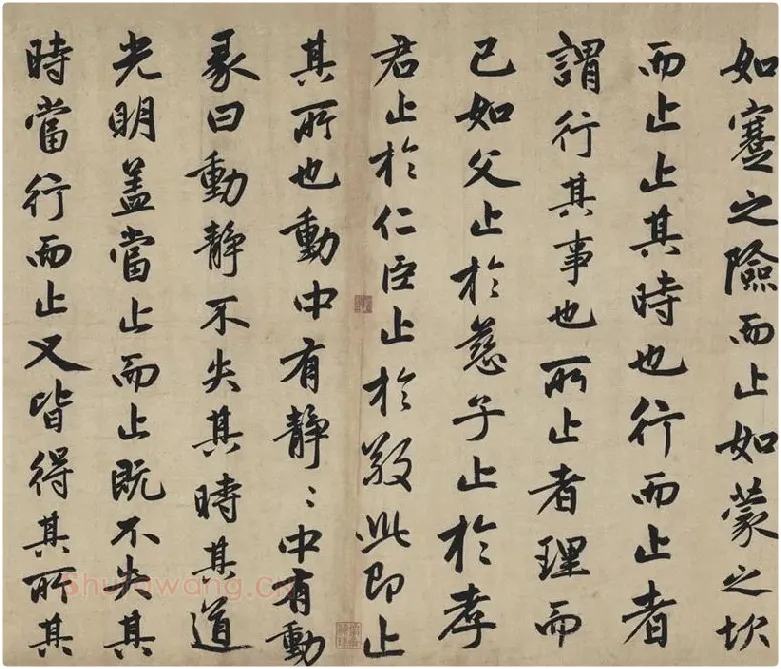 如蹇之險而止如蒙之坎
而止止其時也行而止者
謂行其事也所止者理而
已如父止於慈子止於孝
君止於仁臣止於敬此即止
其所也動中有静〻中有動
彖曰動静不失其時其道
光明盖當止而止既不失其
時當行而止又皆得其所其